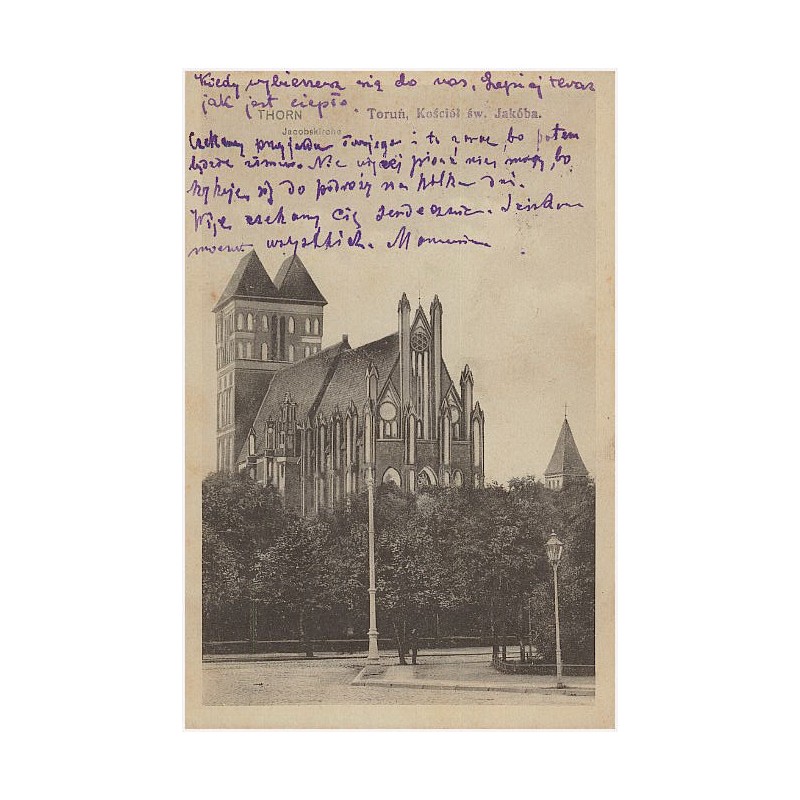 Kiedy wybierzesz się do nas, lepiej teraz
jak jest ciepło.
THORN
Jacobskirche
Toruń, Kościół św. Jakóba.
Czekamy przyjazdu Twojego i to zaraz, bo potem
będzie zimno. Nie więcej pisać nie mogę, bo
się do podróży na kilka dni.
Więc czekamy Cię serdecznie.
wszystkich.